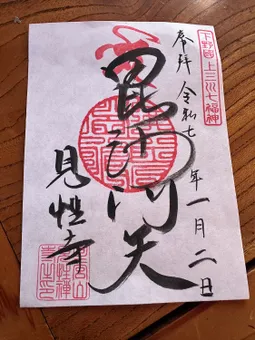 上三川七福神
奉拝 令和七年一月二日
毘沙門天
見性寺